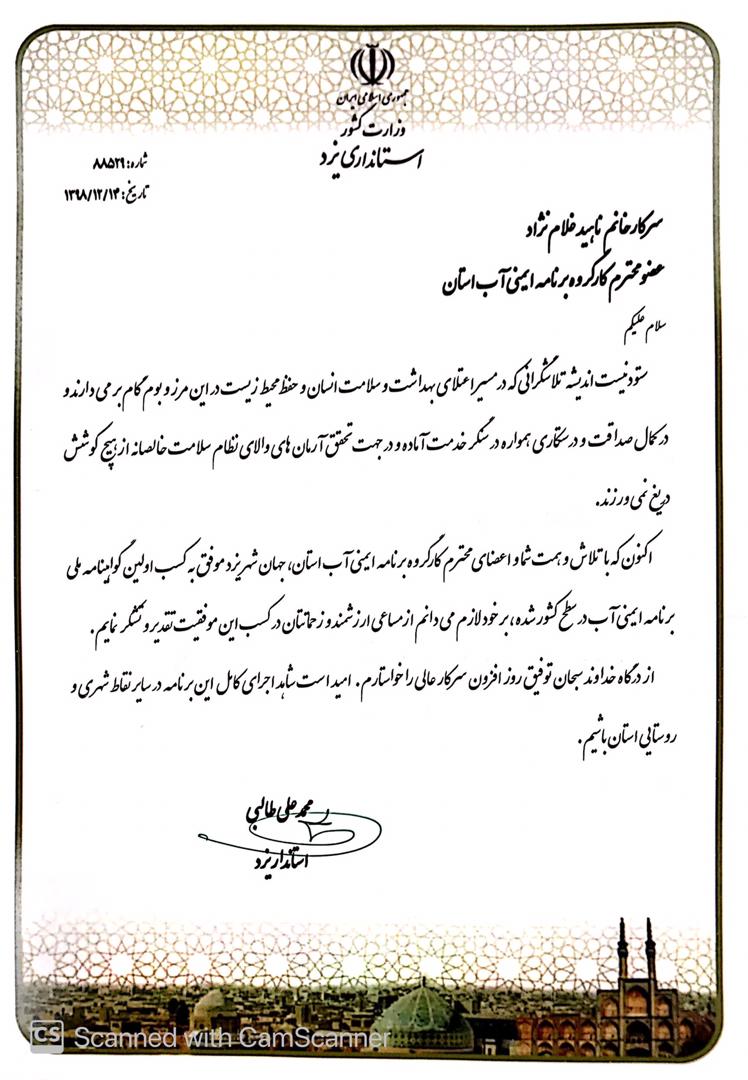 جمهوری اسلامی ایران
وزارت کشور
استانداری یزد
شماره: ۸۸۵۲۹
تاریخ: ۱۳۹۸/۱۲/۱۴
سرکار خانم ناهید غلام نژاد
عضو محترم کارگروه برنامه ایمنی آب استان
سلام علیکم
ستودنیست اندیشه تلاشگرانی که در مسیر اعتلای بهداشت و سلامت انسان و حفظ محیط زیست در این مرز و بوم گام بر می دارند و
در کمال صداقت و درستکاری همواره در سنگر خدمت آماده و در جهت تحقق آرمان های والای نظام سلامت خالصانه از هیچ کوشش
دریغ نمی ورزند.
اکنون که با تلاش و همت شما و اعضای محترم کارگروه برنامه ایمنی آب استان، جهان شهر یزد موفق به کسب اولین گواهینامه ملی
برنامه ایمنی آب در سطح کشور شده، بر خود لازم می دانم از مساعی ارزشمند و زحماتتان در کسب این موفقیت تقدیر و تشکر نمایم.
از درگاه خداوند سبحان توفیق روز افزون سرکار عالی را خواستارم. امید است شاهد اجرای کامل این برنامه در سایر نقاط شهری و
روستایی استان باشیم.
محمد علی طالبی
استاندار یزد
CS Scanned with CamScanner